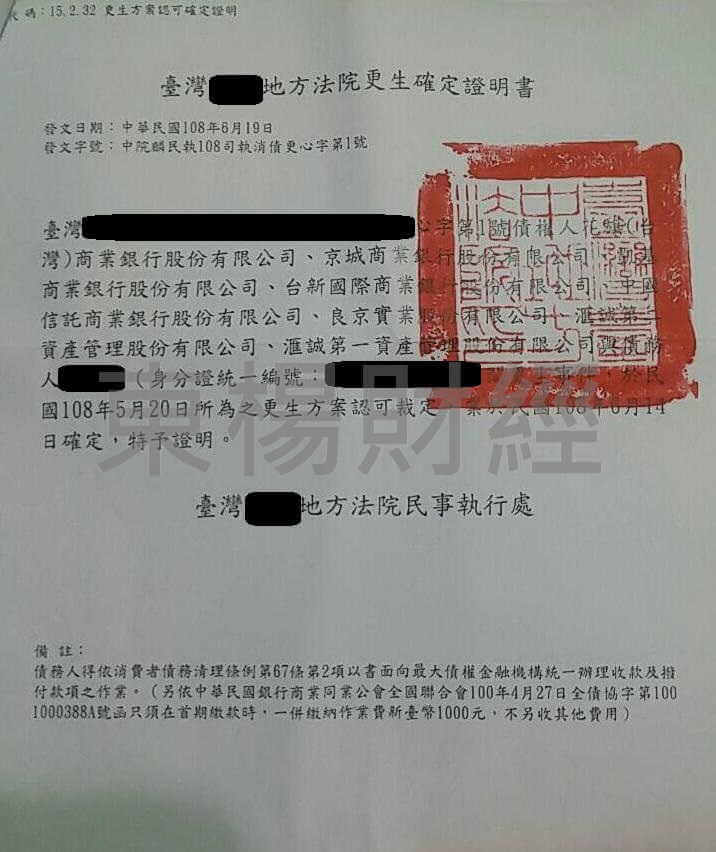 碼：15.2.32 更生方案認可確定證明
臺灣 地方法院更生確定證明書
發文日期：中華民國108年6月19日
發文字號：中院麟民執108司執消債更心字第1號
臺灣 心字第1號債權人花旗(台
灣)商業銀行股份有限公司、京城商業銀行股份有限公司、凱基
商業銀行股份有限公司、台新國際商業銀行股份有限公司、中國
信託商業銀行股份有限公司、良京實業股份有限公司、滙誠第二
資產管理股份有限公司、滙誠第一資產管理股份有限公司與債務
人 (身分證統一編號： 事 於民
國108年5月20日所為之更生方案認可裁定 業於民國108年6月14
日確定，特予證明。
東楊財經
臺灣 地方法院民事執行處
備註：
債務人得依消費者債務清理條例第67條第2項以書面向最大債權金融機構統一辦理收款及撥
付款項之作業。（另依中華民國銀行商業同業公會全國聯合會100年4月27日全債協字第100
1000388A號函只須在首期繳款時，一併繳納作業費新臺幣1000元，不另收其他費用）